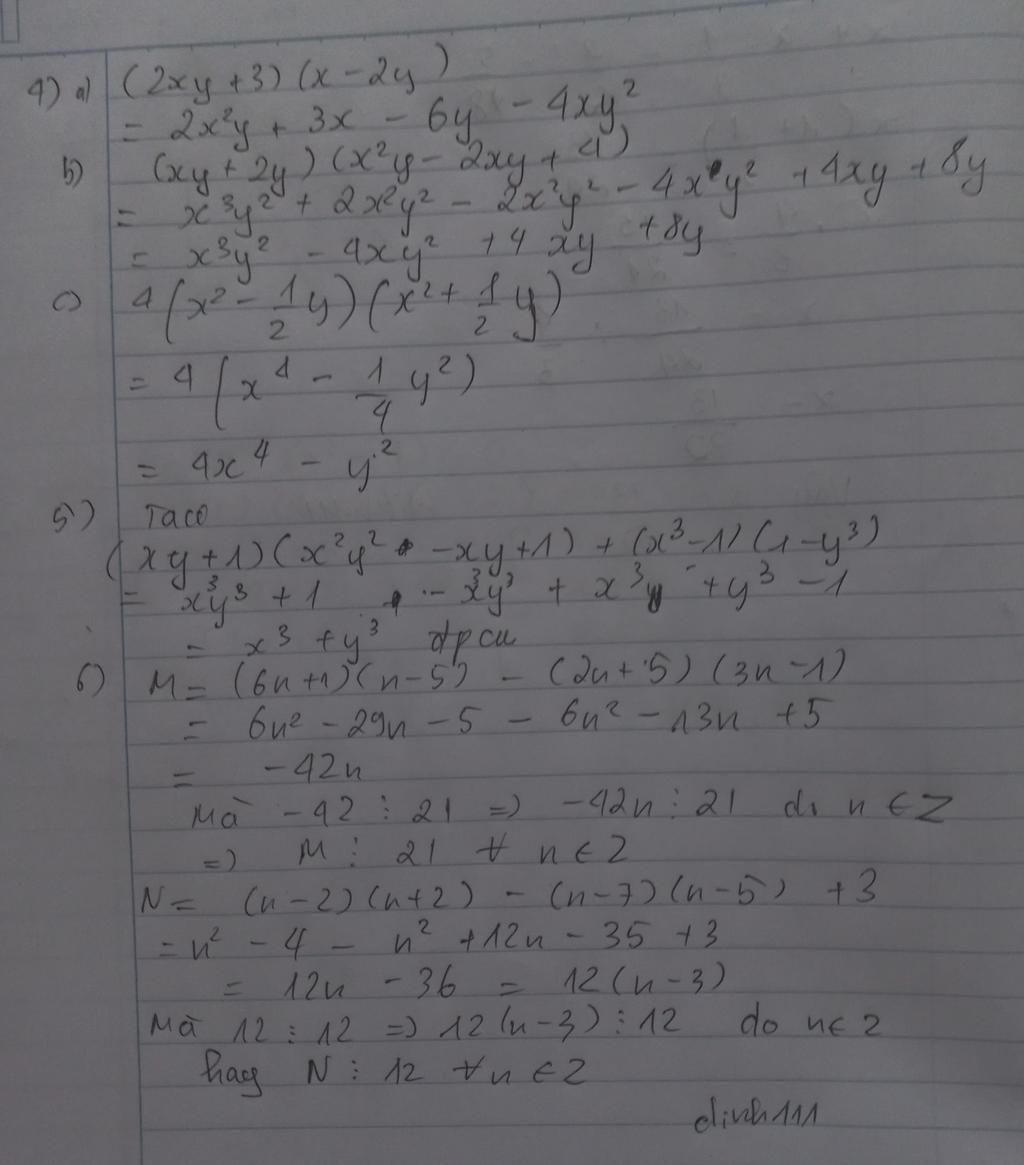 4) a) (2xy + 3) (x - 2y)
= 2x²y + 3x - 6y - 4xy²
b) (xy + 2y) (x²y - 2xy + 4)
= x³y² + 2x²y² - 2x²y² - 4xy² + 4xy + 8y
= x³y² - 4xy² + 4xy + 8y
c) 4(x² - 1/2 y)(x² + 1/2 y)
= 4(x⁴ - 1/4 y²)
= 4x⁴ - y²
5) Taco
(xy + 1)(x²y² - xy + 1) + (x³ - 1)(1 - y³)
= x³y³ + 1 - x³y³ + x³ + y³ - 1
= x³ + y³ đpcm
6) M = (6n + 1)(n - 5) - (2n + 5)(3n - 1)
= 6n² - 29n - 5 - 6n² - 13n + 5
= -42n
Mà -42 ⋮ 21 => -42n ⋮ 21 do n ∈ Z
=> M ⋮ 21 ∀ n ∈ Z
N = (n - 2)(n + 2) - (n - 7)(n - 5) + 3
= n² - 4 - n² + 12n - 35 + 3
= 12n - 36 = 12(n - 3)
Mà 12 ⋮ 12 => 12(n - 3) ⋮ 12 do n ∈ Z
hay N ⋮ 12 ∀ n ∈ Z
dinh111